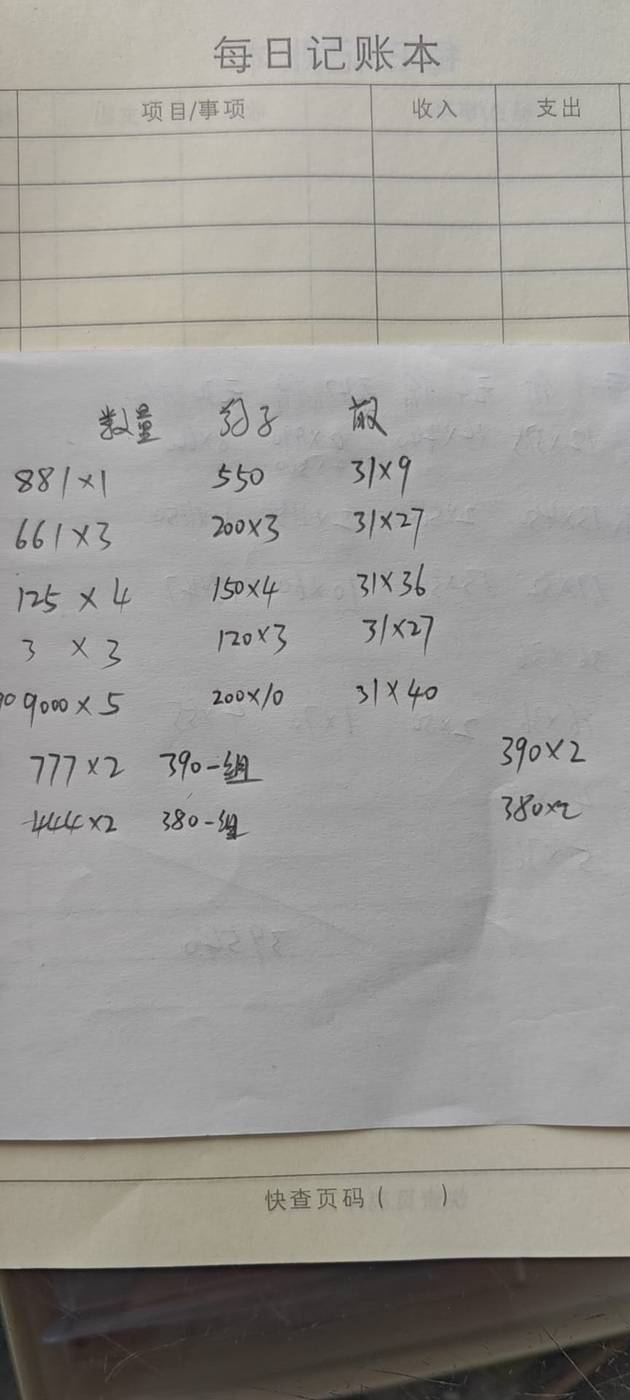 每日记账本
项目/事项 收入 支出
数量 豹子 散
881×1 550 31×9
661×3 200×3 31×27
125×4 150×4 31×36
3×3 120×3 31×27
9000×5 200×10 31×40
777×2 390一组 390×2
444×2 380一组 380×2
快查页码( )